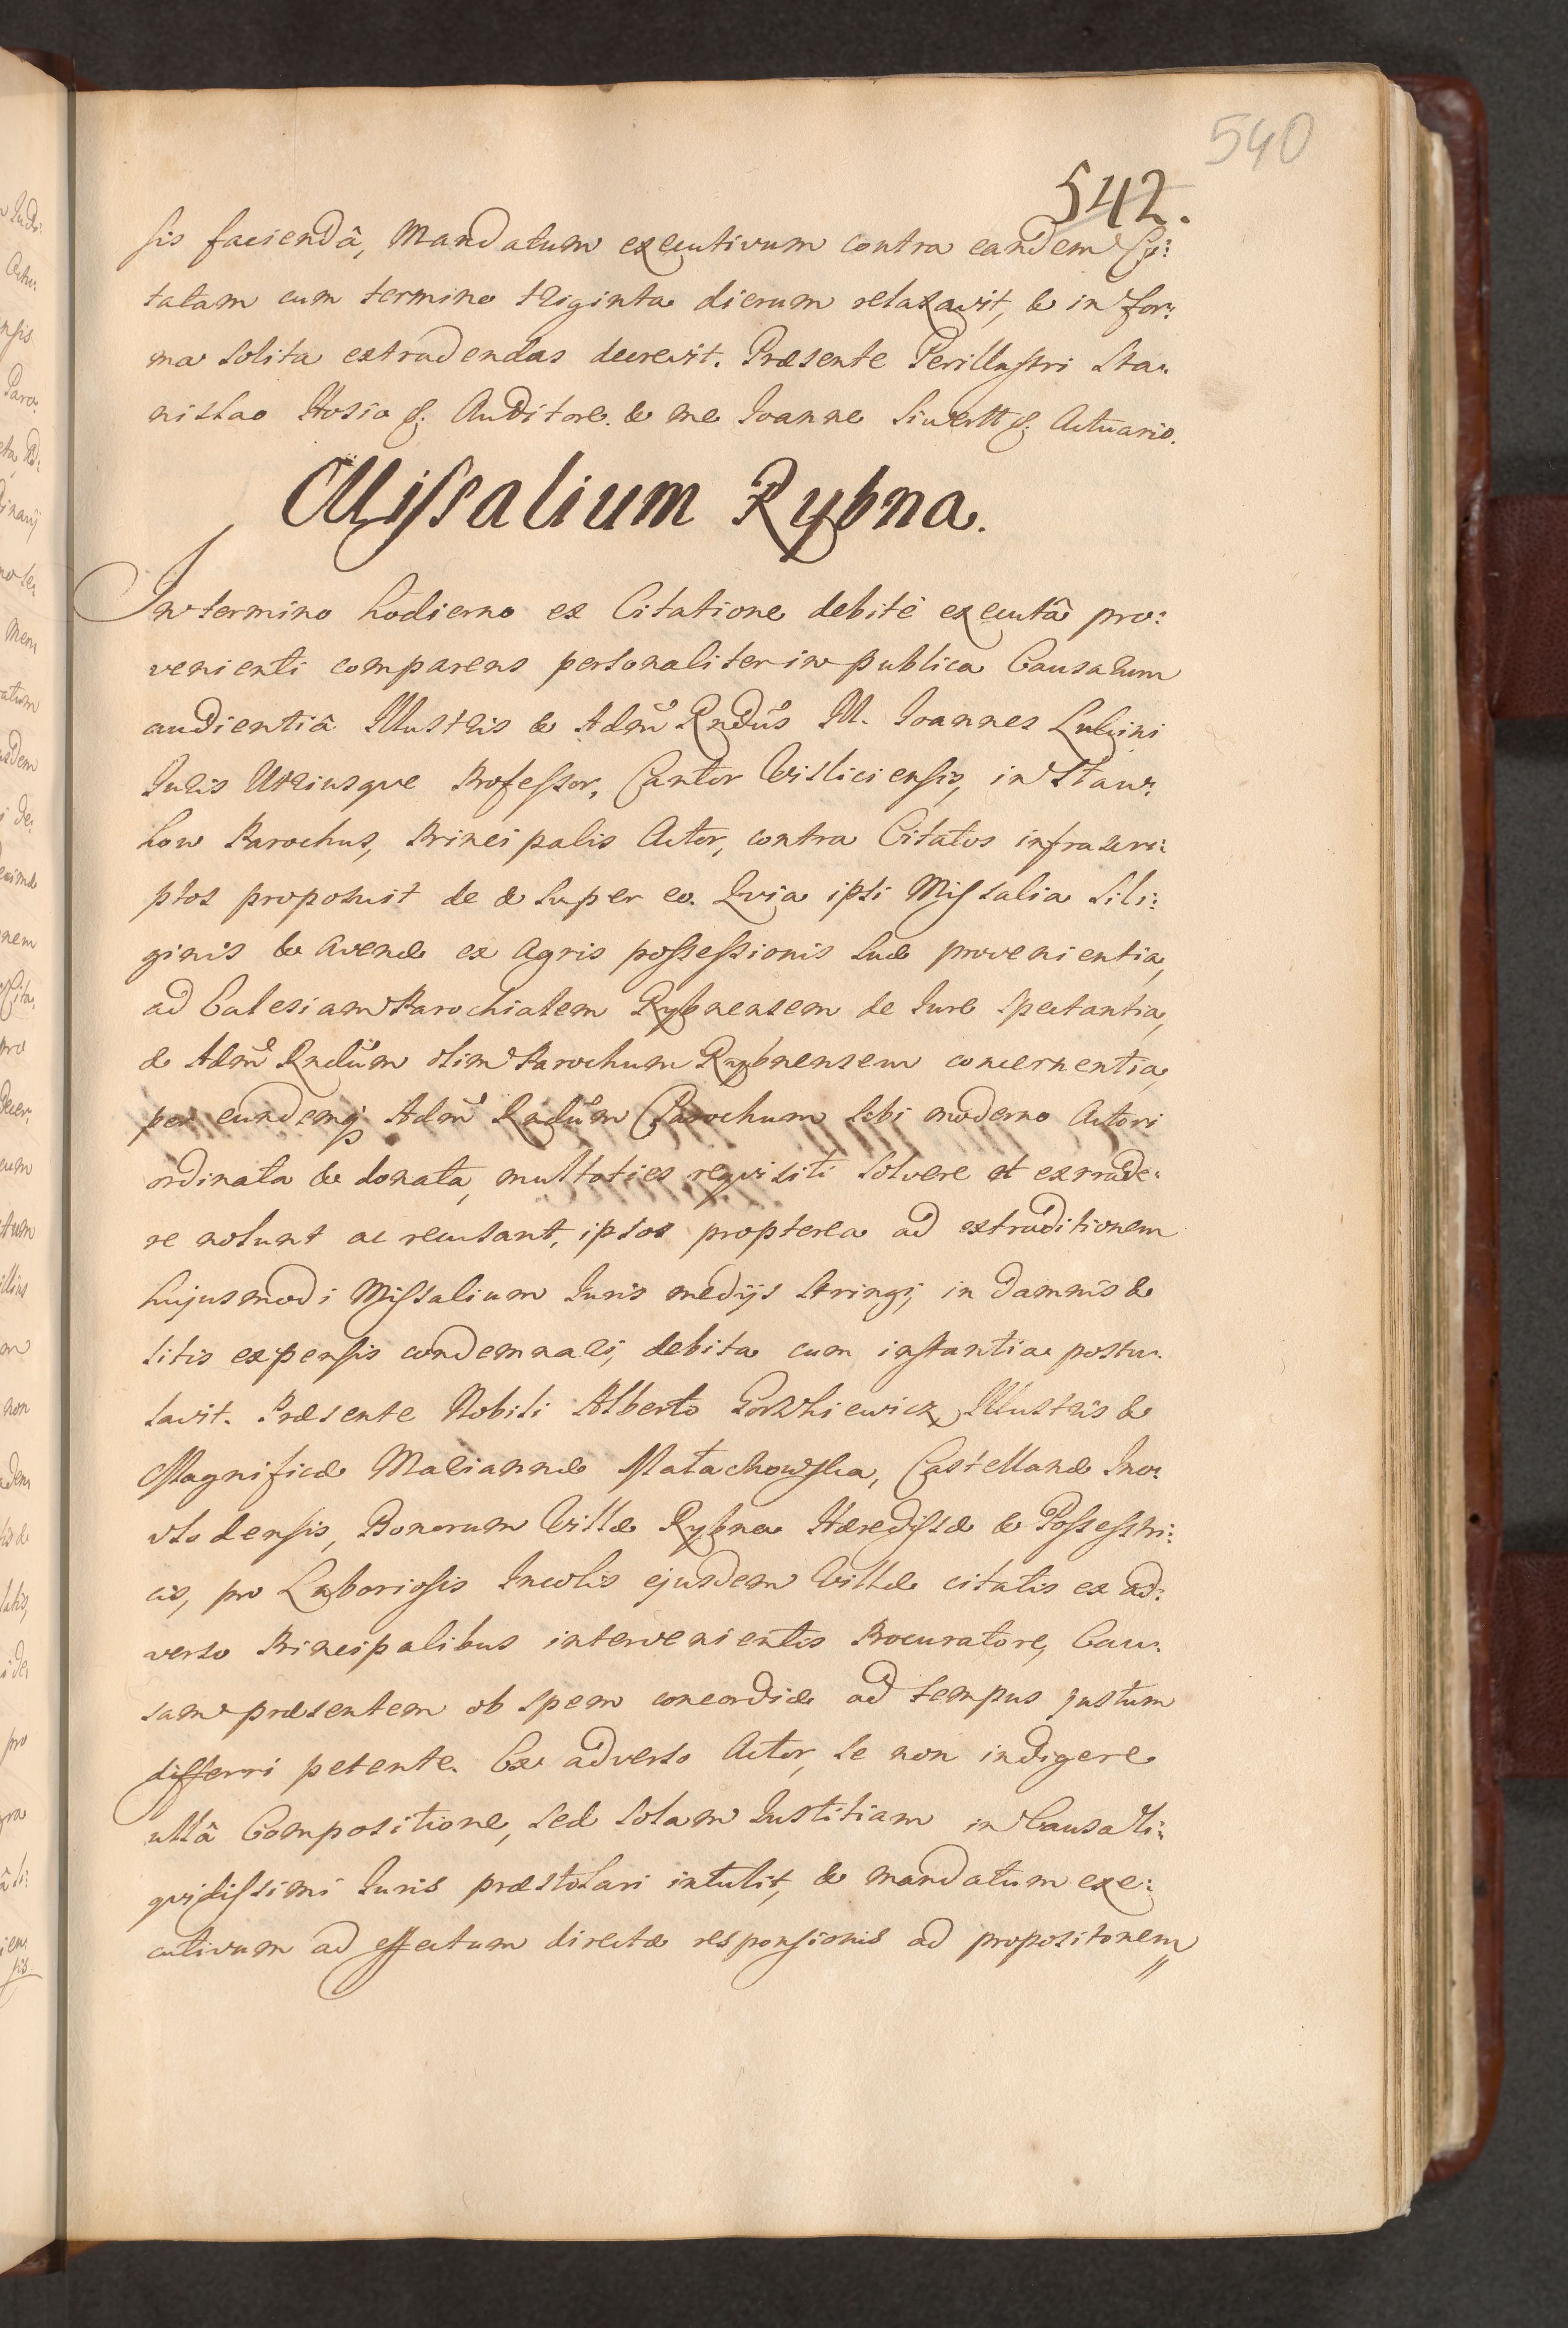 540
542.
sis faciendâ, Mandatum executivum contra eandem Ci:
tatam cum termino triginta dierum relaxavit, & in for:
ma solita extradendas decrevit. Præsente Perillustri Sta:
nislao Hosio S. Auditore. & me Joanne Siwertt S. Actuario.
Missalium Rybna.
In termino hodierno ex Citatione debitè executâ pro:
venienti comparens personaliter in publica Causarum
audientiâ Illustris & Adm̃ Rndũs M. Joannes Lukini
Juris Utriusque Professor, Cantor Visliciensis, in Staw:
kow Parochus, Principalis Actor, contra Citatos infrascri:
ptos proposuit de & super eo. Quia ipsi Missalia sili:
ginis & avenæ ex agris possessionis suæ provenientia,
ad Eclesiam Parochialem Rybnensem de Jure spectantia,
& Adm̃ Rndũm olim Parochum Rybnensem concernentia,
per eundemq; Adm̃ Rndũm Parochum sibi moderno Actori
ordinata & donata, multoties requisiti solvere et exrade:
re nolunt ac recusant, ipsos propterea ad extraditionem
hujusmodi Missalium Juris medijs stringi, in damnis &
litis expensis condemnari, debita cum instantia postu:
lavit. Præsente Nobili Alberto Illustris &
Magnificæ Mariannæ Małachowska, Castellanæ Ino:
vlodensis, Bonorum Villæ Rybna Hæredissæ & Possestri:
cis, pro Laboriosis Incolis ejusdem Villæ citatis ex ad:
verso Principalibus intervenientis Procuratore, Cau:
sam præsentem ob spem concordiæ ad tempus justum
differri petente. Ex adverso Actor, se non indigere
ullâ Compositione, sed solam Justitiam in Causa li:
quidissimi Juris præstolari intulit, & mandatum exe:
cutivum ad effectum directæ responsionis ad propositonem